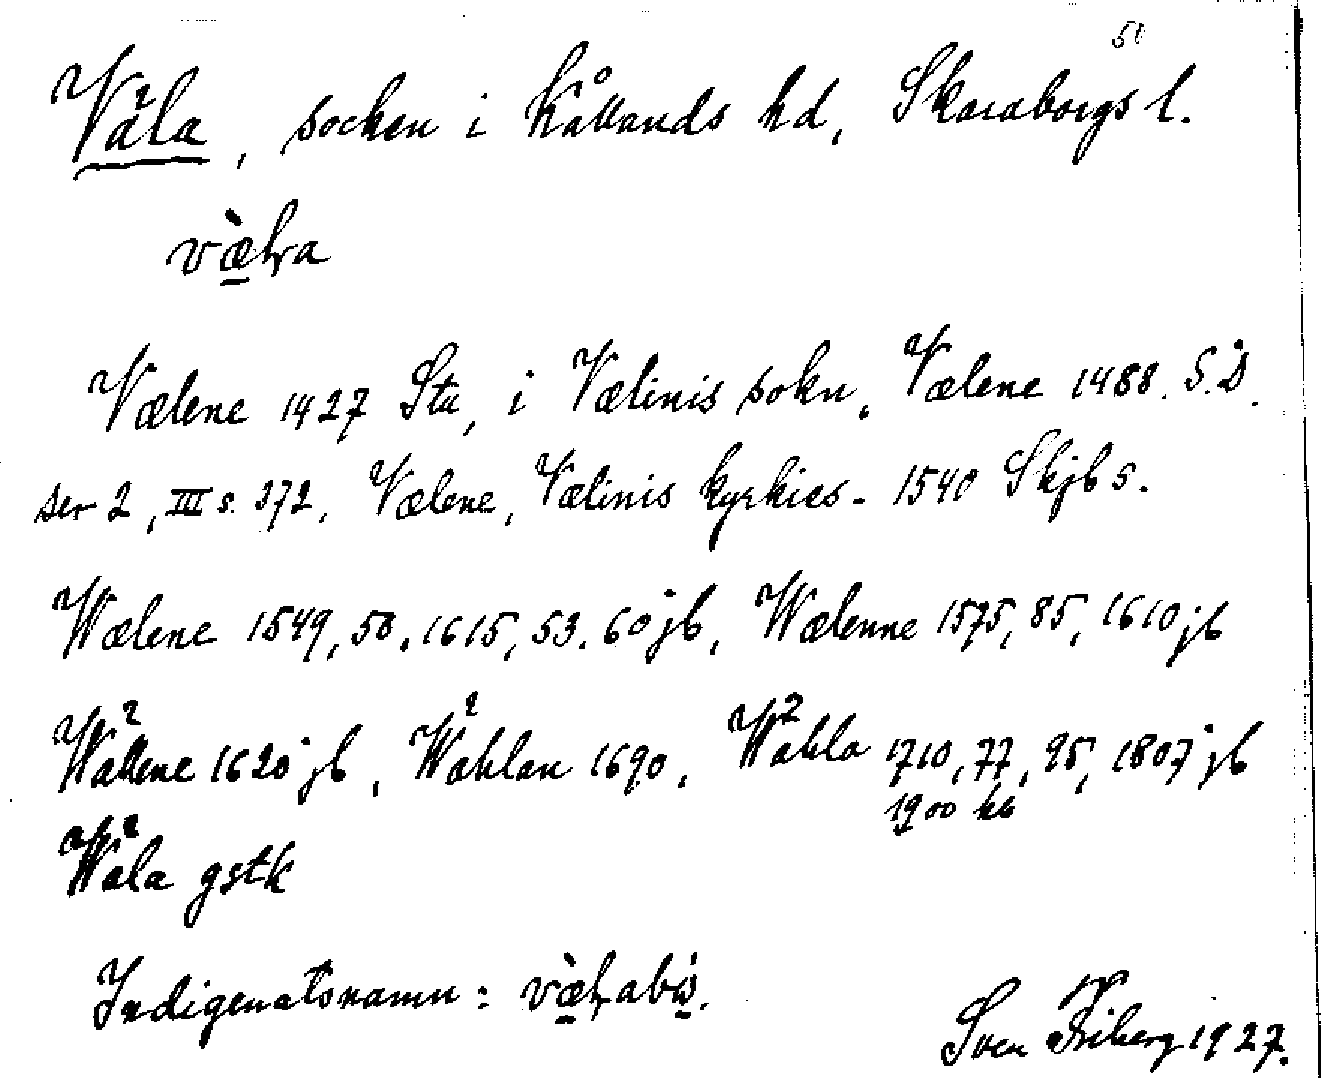 50
Väla, socken i Kållands hd, Skaraborgs l.
væ̀ɫa
Vælene 1427 Sta, i Vælinis sokn, Vælene 1488. S.D.
ser 2, III s. 272, Vælene, Vælinis kyrkies - 1540 Skjb 5.
Wælene 1549, 50, 1615, 53, 60 jb, Wælenne 1575, 85, 1610 jb
Wällene 1620 jb, Wählan 1690, Wähla 1710, 77, 95, 1807 jb
1900 kb
Wäla gstk
Indigenatsnamn: væ̀ɫabo.
Sven Friberg 1927.